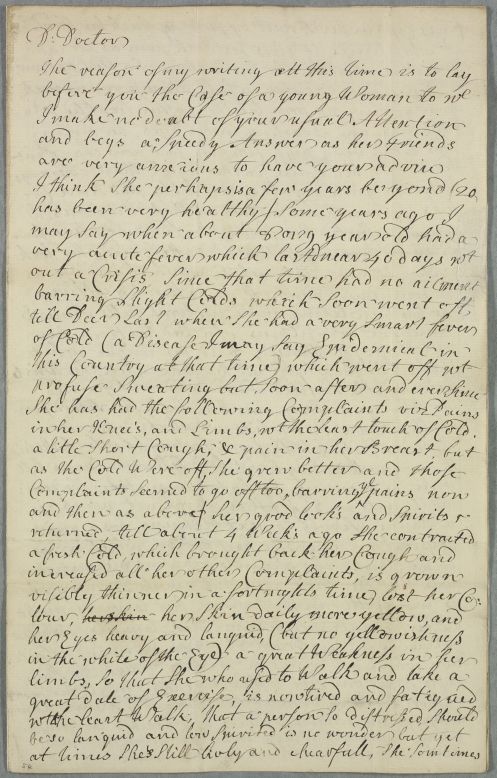 Dr: Doctor
The reason of my writing att this time is to lay
before you the Case of a young Woman to wc
I make no doubt of your usual Attention
and begs a Speedy Answer as her friends
are very anxious to have your advice
I think She perhaps is a few years beyond 20,
has been very healthy/ Some years ago I
may say when about 8 or 9 year old had a
very acute fever which lasted near 40 days wt
out a Crisis Since that time had no ailment
barring Slight Colds which Soon went off
till Decr Last when She had a very Smart fever
of Cold (a Disease I may say Epidemical in
this Country at that time) which went off wt
profuse Sweating but Soon after and ever Since
She has had the following Complaints viz Pains
in her Knees, and Limbs, wt the least touch of Cold,
a litle Short Cough, & pain in her Breast, but
as the Cold Wore off, She grew better and those
Complaints seemed to go off too, barring ye pains now
and then as above/ her good looks and Spirits
returned, till about 4 Weeks ago She contracted
a fresh Cold, which brought back her Cough and
increased all her other Complaints, is grown
visibly thinner in a fortnights time, lost her Co:
lour her skin her Skin daily more yellow, and
her Eyes heavy and languid, (but no yellowishness
in the white of the Eye) a great Weakness in her
limbs, So that She who used to Walk and take a
great dale of Exercise, is now tired and fatigued
wt the least Walk, That a person So distressed Should
be so languid and low Spirited is no wonder but yet
at times She's Still lively and chearfull, She Somtimes